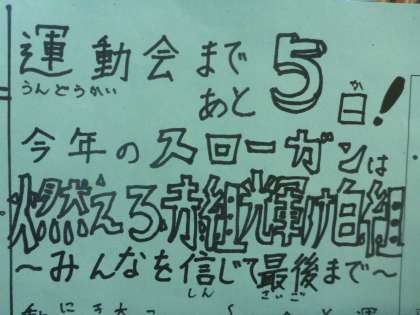 運動会まで
うんどうかい
あと5日!
か
今年のスローガンは
燃えろ赤組輝け白組
～みんなを信じて最後まで～
しん さいご